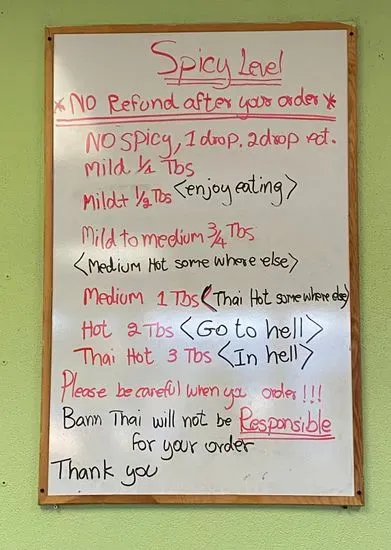 Spicy Level
*NO Refund after your order*
NO Spicy, 1 drop, 2drop ect.
Mild 1/4 Tbs
Mild+ 1/2 Tbs <enjoy eating>
Mild to medium 3/4 Tbs
<Medium Hot some where else>
Medium 1 Tbs <Thai Hot some where else>
Hot 2 Tbs <Go to hell>
Thai Hot 3 Tbs <In hell>
Please be careful when you order !!!
Bann Thai will not be Responsible
for your order
Thank you